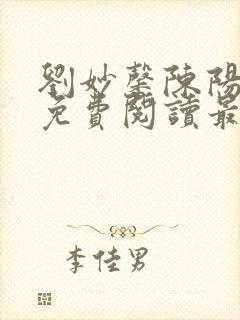 劉妙馨陳陽
免費閱讀最
李佳男